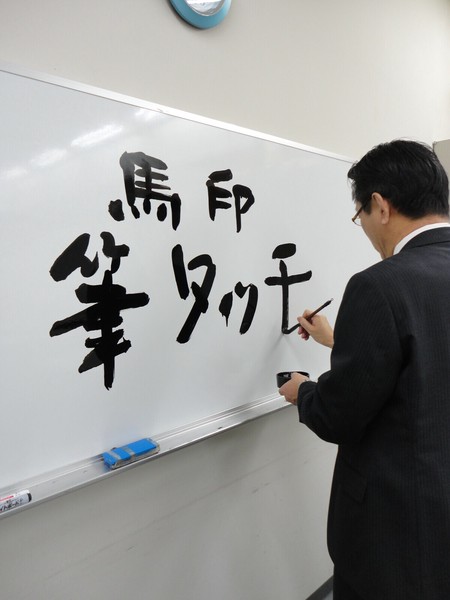 馬印
筆タッチ